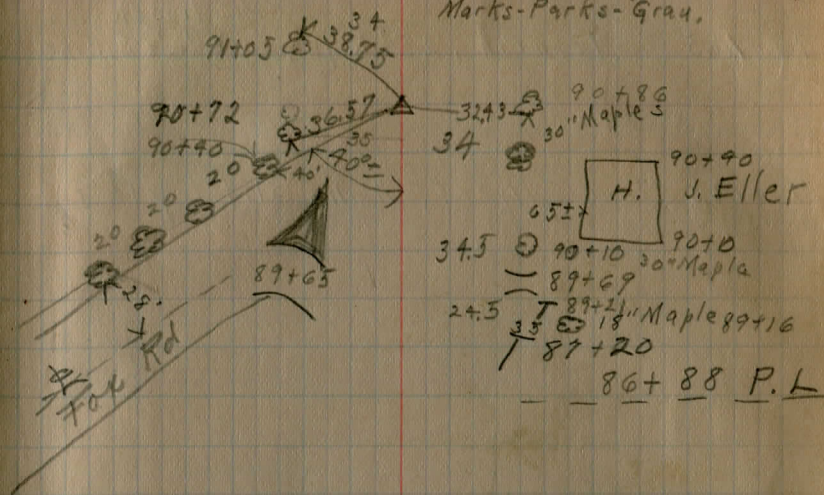 Marks-Parks-Grau.
34
91+05 38.75
90+72 36.57 32.43 90+86
30" Maples
90+40 35 34
40°± 40'
20
90+90
H. J. Eller
20
65±
20
34.5 90+10 90+10
30" Mapla
89+65 89+69
28'
24.5 89+21 18" Maple 89+16
35
87+20
Fox Rd
86+88 P.L